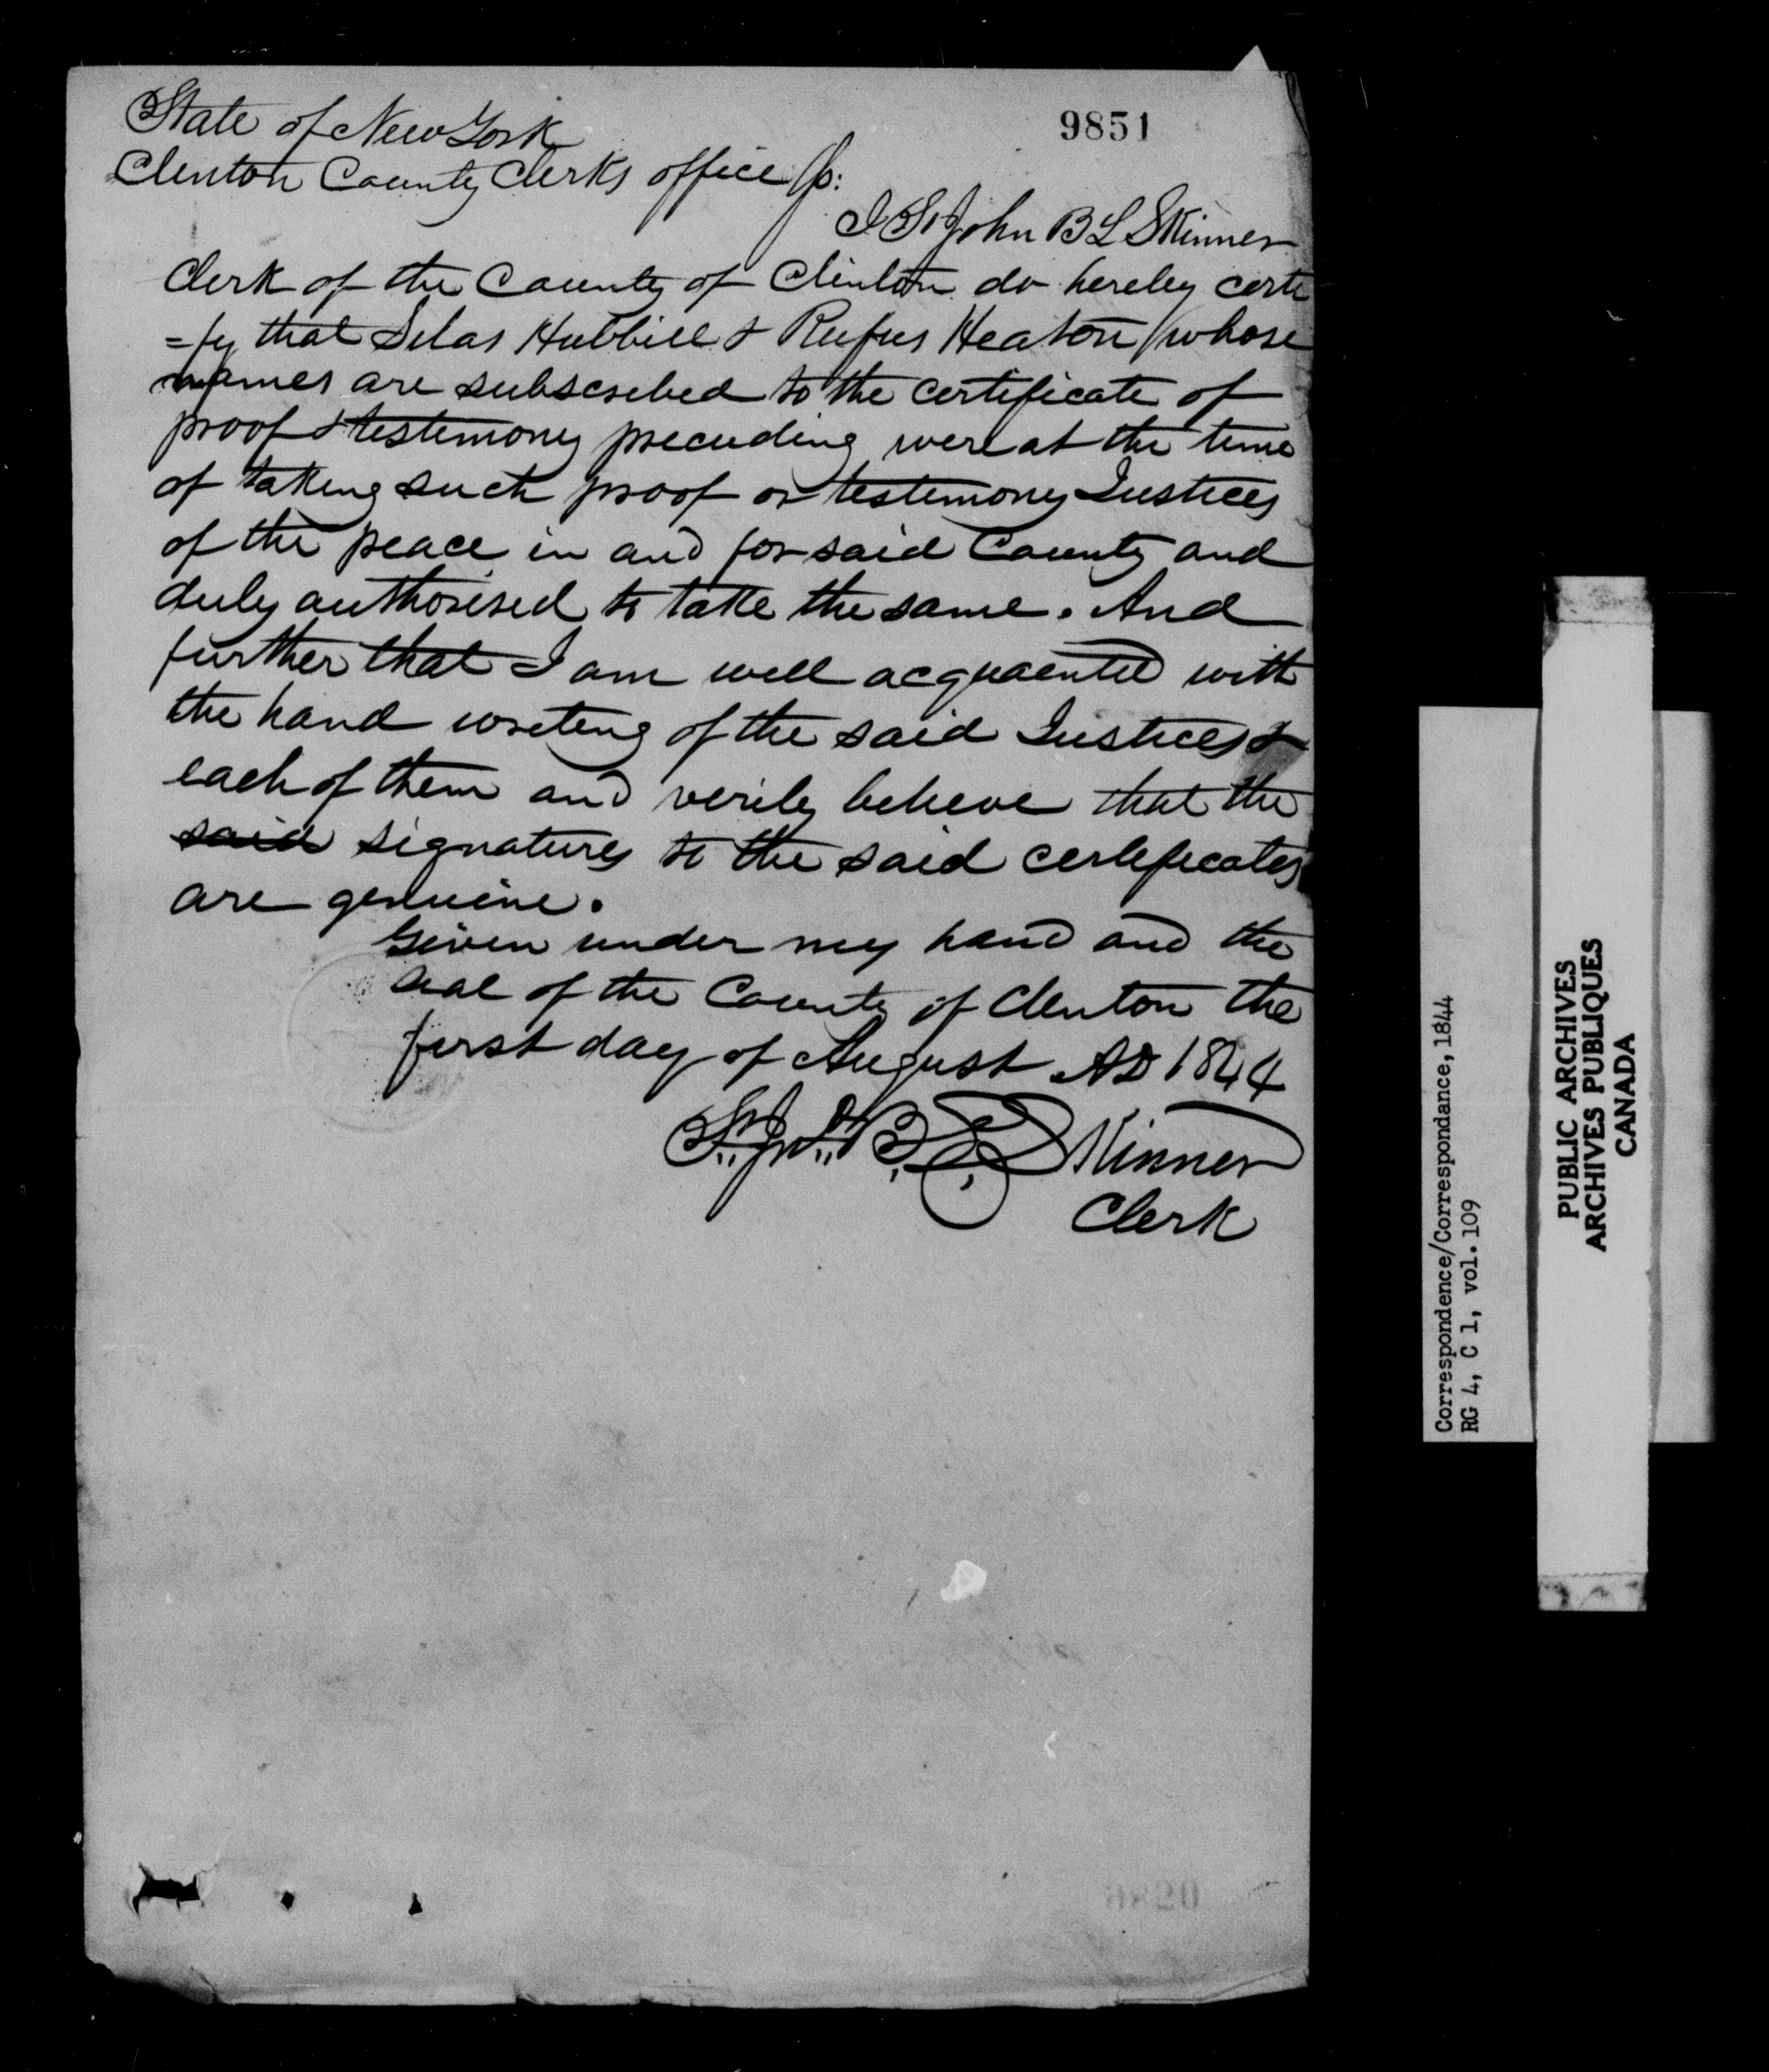 9851
State of New York
Clinton County Clerks office ss:
I St John B L Skinner
Clerk of the County of Clinton do hereby certi
=fy that Silas Hubbell & Rufus Heaton whose
names are subscribed to the certificate of
proof & testimony preceeding were at the time
of taking such proof or testimony Justices
of the peace in and for said County and
duly authorised to take the same. And
further that I am well acquainted with
the hand writing of the said Justices &
each of them and verily believe that the
said signatures to the said certificates
are genuine.
Given under my hand and the
seal of the County of Clinton the
first day of August AD 1844
St. Jno. B. L. Skinner
Clerk
Correspondence/Correspondance, 1844
RG 4, C 1, vol. 109
PUBLIC ARCHIVES
ARCHIVES PUBLIQUES
CANADA